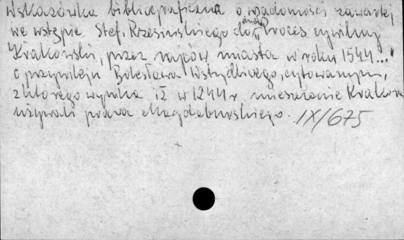 Wskazówka bibliograficzna o wiadomości zawartej
we wstępie Stef. Rzesińskiego do "Proces cywilny
Krakowski, przez rajców miasta w roku 1544..."
o przywileju Bolesława Wstydliwego, cytowanym,
z którego wynika iż w 1244 r mieszczanie Krakowa
używali prawa Magdeburskiego. IX/675